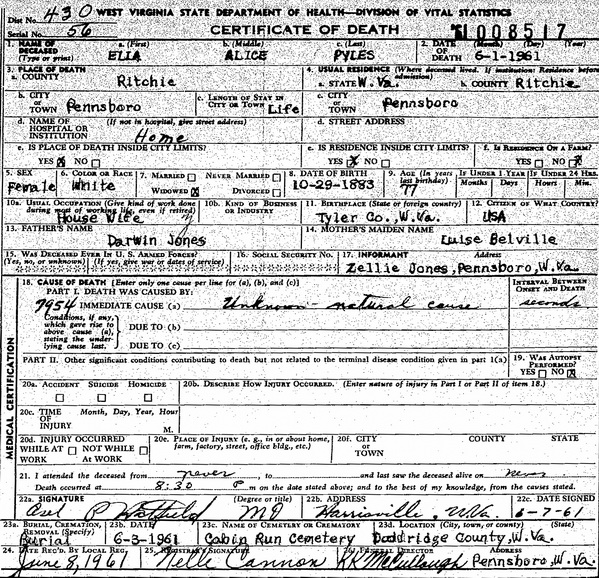 WEST VIRGINIA STATE DEPARTMENT OF HEALTH—DIVISION OF VITAL STATISTICS
Dist No. 430
Serial No. 56 CERTIFICATE OF DEATH 008517
1. NAME OF DECEASED (Type or print) a. (First) ELLA b. (Middle) ALICE c. (Last) PYLES 2. DATE OF DEATH (Month) (Day) (Year) 6-1-1961
3. PLACE OF DEATH 4. USUAL RESIDENCE (Where deceased lived. If institution: Residence before admission)
a. COUNTY Ritchie a. STATE W.Va. b. COUNTY Ritchie
b. CITY OR TOWN Pennsboro c. LENGTH OF STAY IN CITY OR TOWN Life c. CITY OR TOWN Pennsboro
d. NAME OF HOSPITAL OR INSTITUTION (If not in hospital, give street address) Home d. STREET ADDRESS
e. IS PLACE OF DEATH INSIDE CITY LIMITS? e. IS RESIDENCE INSIDE CITY LIMITS? f. IS RESIDENCE ON A FARM?
YES X NO YES X NO YES NO X
5. SEX Female 6. COLOR OR RACE White 7. MARRIED NEVER MARRIED WIDOWED X DIVORCED 8. DATE OF BIRTH 10-29-1883 9. AGE (In years last birthday) 77 IF UNDER 1 YEAR Months Days IF UNDER 24 HRS. Hours Min.
10a. USUAL OCCUPATION (Give kind of work done during most of working life, even if retired) House Wife 10b. KIND OF BUSINESS OR INDUSTRY 11. BIRTHPLACE (State or foreign country) Tyler Co., W.Va. 12. CITIZEN OF WHAT COUNTRY? USA
13. FATHER'S NAME Darwin Jones 14. MOTHER'S MAIDEN NAME Luise Belville
15. WAS DECEASED EVER IN U. S. ARMED FORCES? (Yes, no, or unknown) (If yes, give war or dates of service) 16. SOCIAL SECURITY NO. 17. INFORMANT Address Zellie Jones, Pennsboro, W.Va.
18. CAUSE OF DEATH [Enter only one cause per line for (a), (b), and (c)] INTERVAL BETWEEN ONSET AND DEATH
PART I. DEATH WAS CAUSED BY:
7954 IMMEDIATE CAUSE (a) Unknown natural cause seconds
Conditions, if any, which gave rise to above cause (a), stating the underlying cause last.
DUE TO (b)
DUE TO (c)
PART II. Other significant conditions contributing to death but not related to the terminal disease condition given in part 1(a) 19. WAS AUTOPSY PERFORMED? YES NO X
MEDICAL CERTIFICATION
20a. ACCIDENT SUICIDE HOMICIDE 20b. DESCRIBE HOW INJURY OCCURRED. (Enter nature of injury in Part I or Part II of item 18.)
20c. TIME OF INJURY Month, Day, Year, Hour M.
20d. INJURY OCCURRED WHILE AT WORK NOT WHILE AT WORK 20e. PLACE OF INJURY (e. g., in or about home, farm, factory, street, office bldg., etc.) 20f. CITY OR TOWN COUNTY STATE
21. I attended the deceased from never, to and last saw the deceased alive on never
Death occurred at 8:30 P m on the date stated above; and to the best of my knowledge, from the causes stated.
22a. SIGNATURE (Degree or title) MD 22b. ADDRESS Harrisville, W.Va. 22c. DATE SIGNED 6-7-61
23a. BURIAL, CREMATION, REMOVAL (Specify) Burial 23b. DATE 6-3-1961 23c. NAME OF CEMETERY OR CREMATORY Cabin Run Cemetery 23d. LOCATION (City, town, or county) (State) Doddridge County, W.Va.
24. DATE REC'D. BY LOCAL REG. June 8, 1961 25. REGISTRAR'S SIGNATURE Nelle Cannon 26. FUNERAL DIRECTOR McCullough ADDRESS Pennsboro, W.Va.